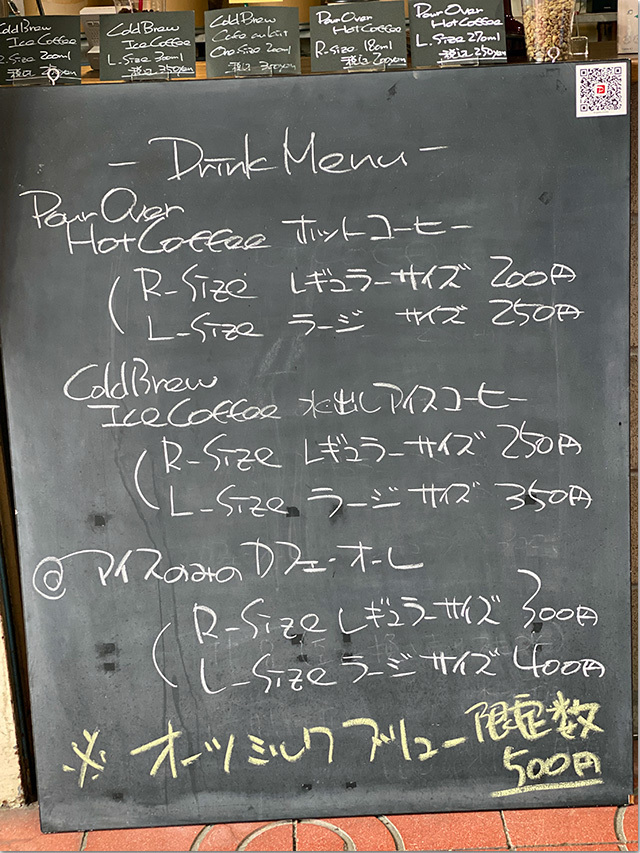 ColdBrew
Ice Coffee
R-Size 200ml
税込
ColdBrew
Ice Coffee
L-Size 300ml
税込 350yen
ColdBrew
Cafe au Lait
One Size 200ml
税込 300yen
Pour Over
Hot Coffee
R-Size 180ml
税込 200yen
Pour Over
Hot Coffee
L-Size 270ml
税込 250yen
- Drink Menu -
Pour Over
Hot Coffee ホットコーヒー
R-Size レギュラーサイズ 200円
L-Size ラージ サイズ 250円
ColdBrew
Ice Coffee 水出しアイスコーヒー
R-Size レギュラーサイズ 250円
L-Size ラージサイズ 350円
◎アイスのみのカフェ・オーレ
R-Size レギュラーサイズ 300円
L-Size ラージサイズ 400円
※ オーツミルクブリュー 限定数
500円